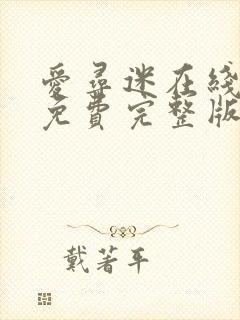 爱尋迷在綫
免費完整版
戴著平